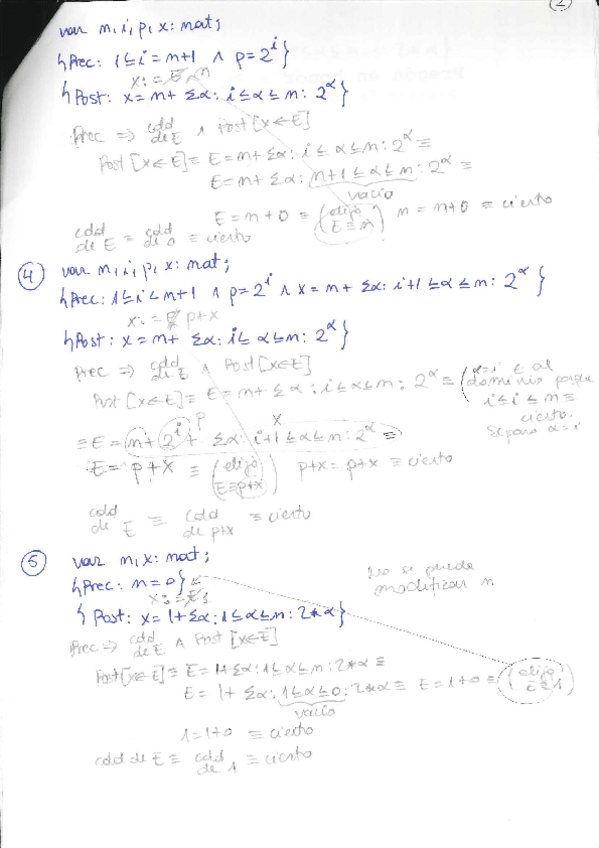 2
var n, i, p, x: nat;
{Prec: 1 ≤ i = n+1 ∧ p = 2^i}
x := E n
{Post: x = n + Σα: i ≤ α ≤ n: 2^α}
Prec ⇒ cdd de E ∧ Post[x←E]
Post[x←E] ≡ E = n + Σα: i ≤ α ≤ n: 2^α ≡
E = n + Σα: n+1 ≤ α ≤ n: 2^α ≡
vacío
E = n+0 ≡ (elijo E ≡ n) n = n+0 ≡ cierto
cdd de E ≡ cdd de n ≡ cierto
4 var n, i, p, x: nat;
{Prec: 1 ≤ i < n+1 ∧ p = 2^i ∧ x = n + Σα: i+1 ≤ α ≤ n: 2^α}
x := E p+x
{Post: x = n + Σα: i ≤ α ≤ n: 2^α}
Prec ⇒ cdd de E ∧ Post[x←E]
Post[x←E] ≡ E = n + Σα: i ≤ α ≤ n: 2^α ≡ (α=i ∈ al dominio porque i ≤ i ≤ n ≡ cierto. Separo α=i
p x
≡ E = n + 2^i + Σα: i+1 ≤ α ≤ n: 2^α ≡
E = p+x ≡ (elijo E≡p+x) p+x = p+x ≡ cierto
cdd de E ≡ cdd de p+x ≡ cierto
5 var n, x: nat;
{Prec: n = 0}
No se puede modificar n
x := E 1
{Post: x = 1 + Σα: 1 ≤ α ≤ n: 2*α}
Prec ⇒ cdd de E ∧ Post[x←E]
Post[x←E] ≡ E = 1 + Σα: 1 ≤ α ≤ n: 2*α ≡
E = 1 + Σα: 1 ≤ α ≤ 0: 2*α ≡ E = 1+0 ≡ (elijo E≡1)
vacío
1 = 1+0 ≡ cierto
cdd de E ≡ cdd de 1 ≡ cierto